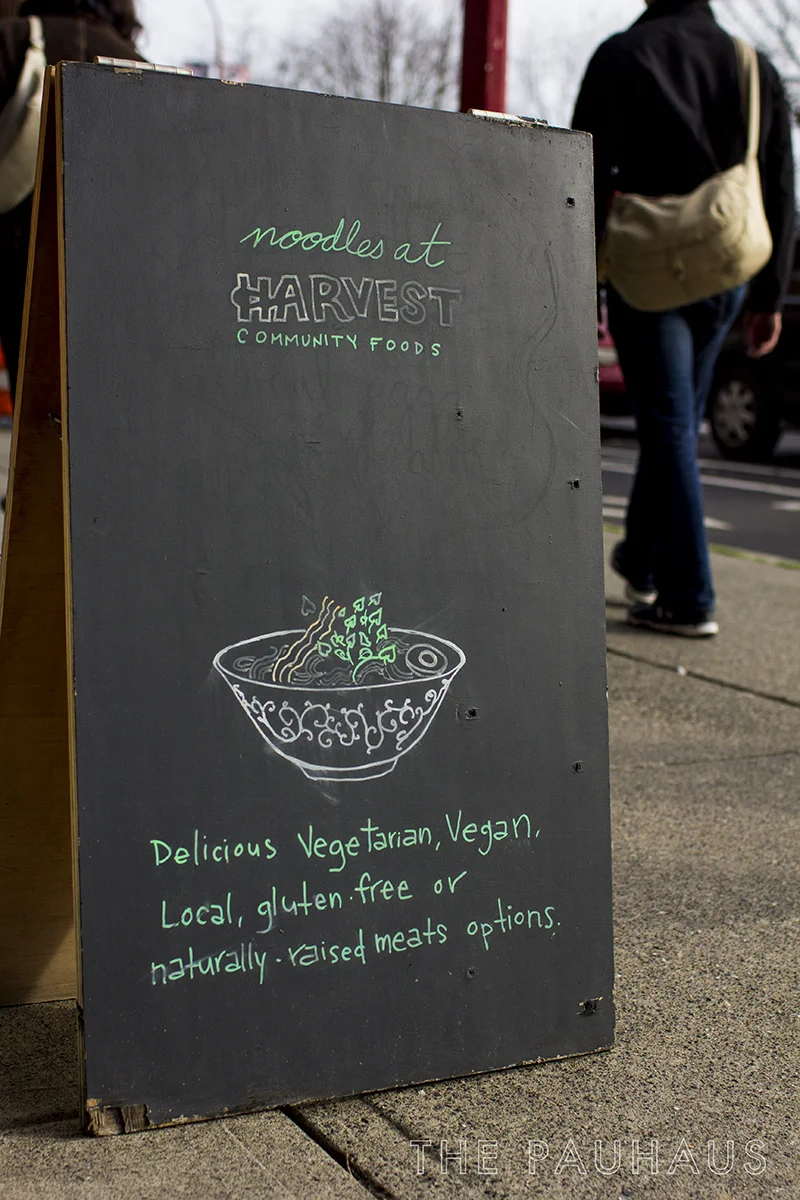 noodles at
HARVEST
COMMUNITY FOODS
Delicious Vegetarian, Vegan,
Local, gluten-free or
naturally-raised meats options.
THE PAUHAUS